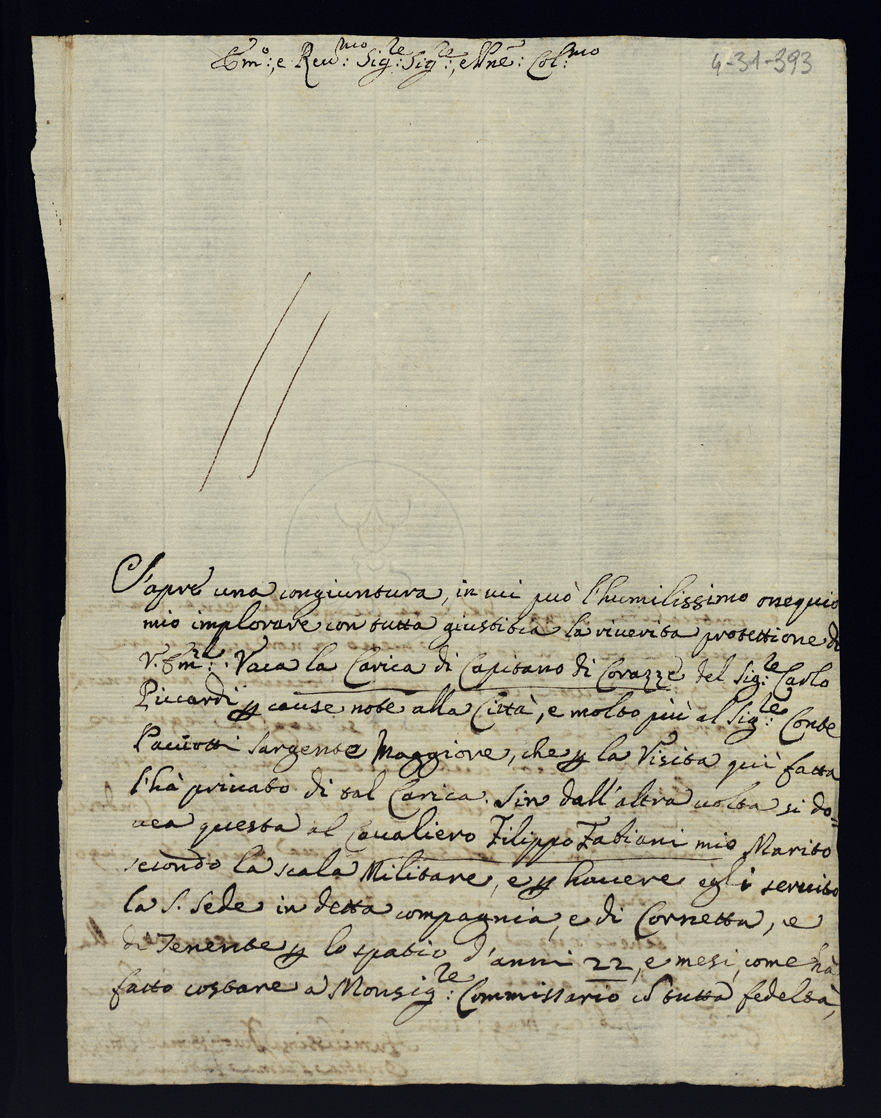 Em:º, e Reu:mo Sig:re Sig:re, e Pne: Col:mo
4-31-393
S'apre una congiuntura, in cui può l'humilissimo ossequio
mio implorare con tutta giustitia la riuerita protettione di
V. Em:za. Vaca la Carica di Capitano di Corazze del Sig:re Carlo
Piccardi p cause note alla Città, e molto più al Sig:re Conte
Paciotti Sargente Maggiore, che p la Visita qui fatta
l'hà priuato di tal Carica. Sin dall'altra uolta si do=
uea questa al Caualiero Filippo Fabiani mio Marito
secondo la scala Militare, e p hauere egli seruito
la S. Sede in detta compagnia, e di Cornetta, e
di Tenente p lo spatio d'anni 22, e mesi, come hà
fatto costare a Monsig:re Commissario con tutta fedeltà,